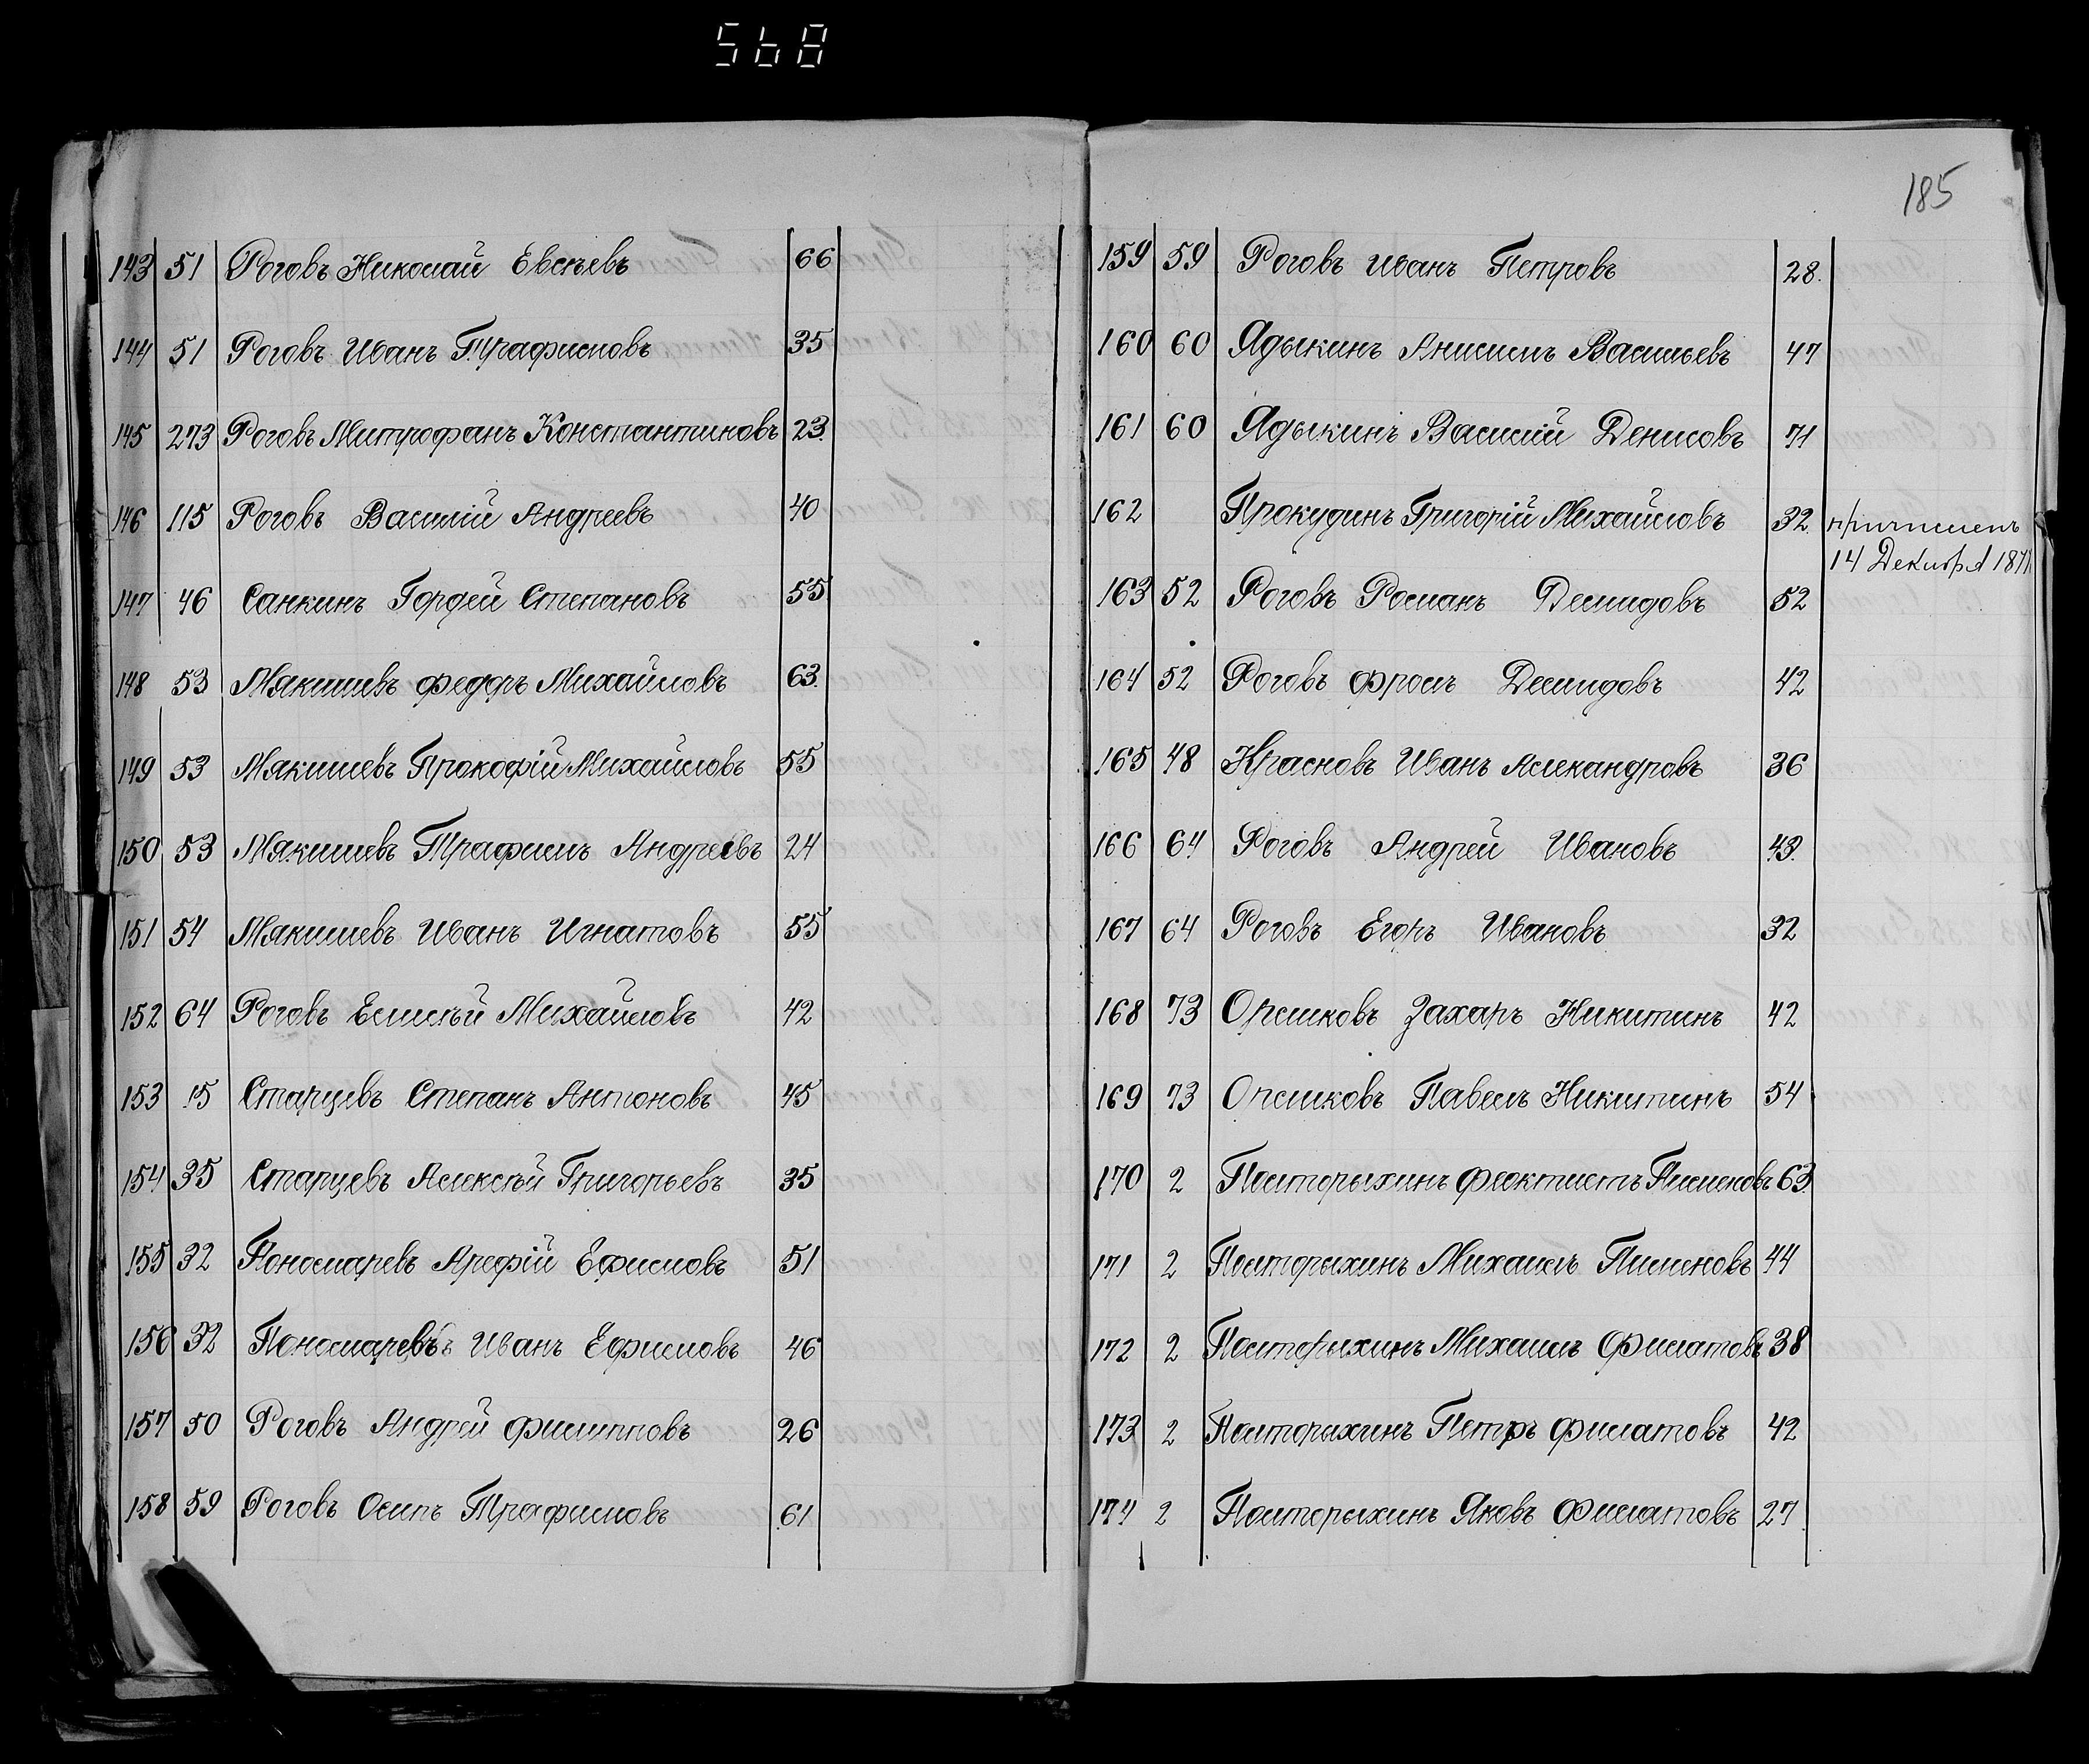 568
143 51 Роговъ Николай Евсѣевъ 66
144 51 Роговъ Иванъ Трафимовъ 35
145 273 Роговъ Митрофанъ Константиновъ 23.
146 115 Роговъ Василій Андреевъ 40
147 46 Санкинъ Гордей Степановъ 55
148 53 Мякишевъ Федоръ Михайловъ 63.
149 53 Мякишевъ Прокофій Михайловъ 55
150 53 Мякишевъ Трафимъ Андреевъ 24
151 54 Мякишевъ Иванъ Игнатовъ 55
152 64 Роговъ Елисѣй Михайловъ 42
153 15 Старцевъ Степанъ Антоновъ 45
154 35 Старцевъ Алексѣй Григорьевъ 35
155 32 Пономаревъ Арефій Ефимовъ 51
156 32 Пономаревъ Иванъ Ефимовъ 46
157 50 Роговъ Андрей Филипповъ 26
158 59 Роговъ Осипъ Трафимовъ 61
185
159 59 Роговъ Иванъ Петровъ 28.
160 60 Ядыкинъ Анисимъ Васильевъ 47
161 60 Ядыкинъ Василій Денисовъ 71
162 Прокудинъ Григорій Михайловъ 32. причисленъ
14 Декабря
163 52 Роговъ Романъ Демидовъ 52
164 52 Роговъ Фролъ Демидовъ 42
165 48 Красновъ Иванъ Александровъ 36
166 64 Роговъ Андрей Ивановъ 43.
167 64 Роговъ Егоръ Ивановъ 32
168 73 Орешковъ Захаръ Никитинъ 42
169 73 Орешковъ Павелъ Никитинъ 54
170 2 Полторыхинъ Феоктистъ Пименовъ 63.
171 2 Полторыхинъ Михаилъ Пименовъ 44
172 2 Полторыхинъ Михаилъ Филатовъ 38
173 2 Полторыхинъ Петръ Филатовъ 42
174 2 Полторыхинъ Яковъ Филатовъ 27